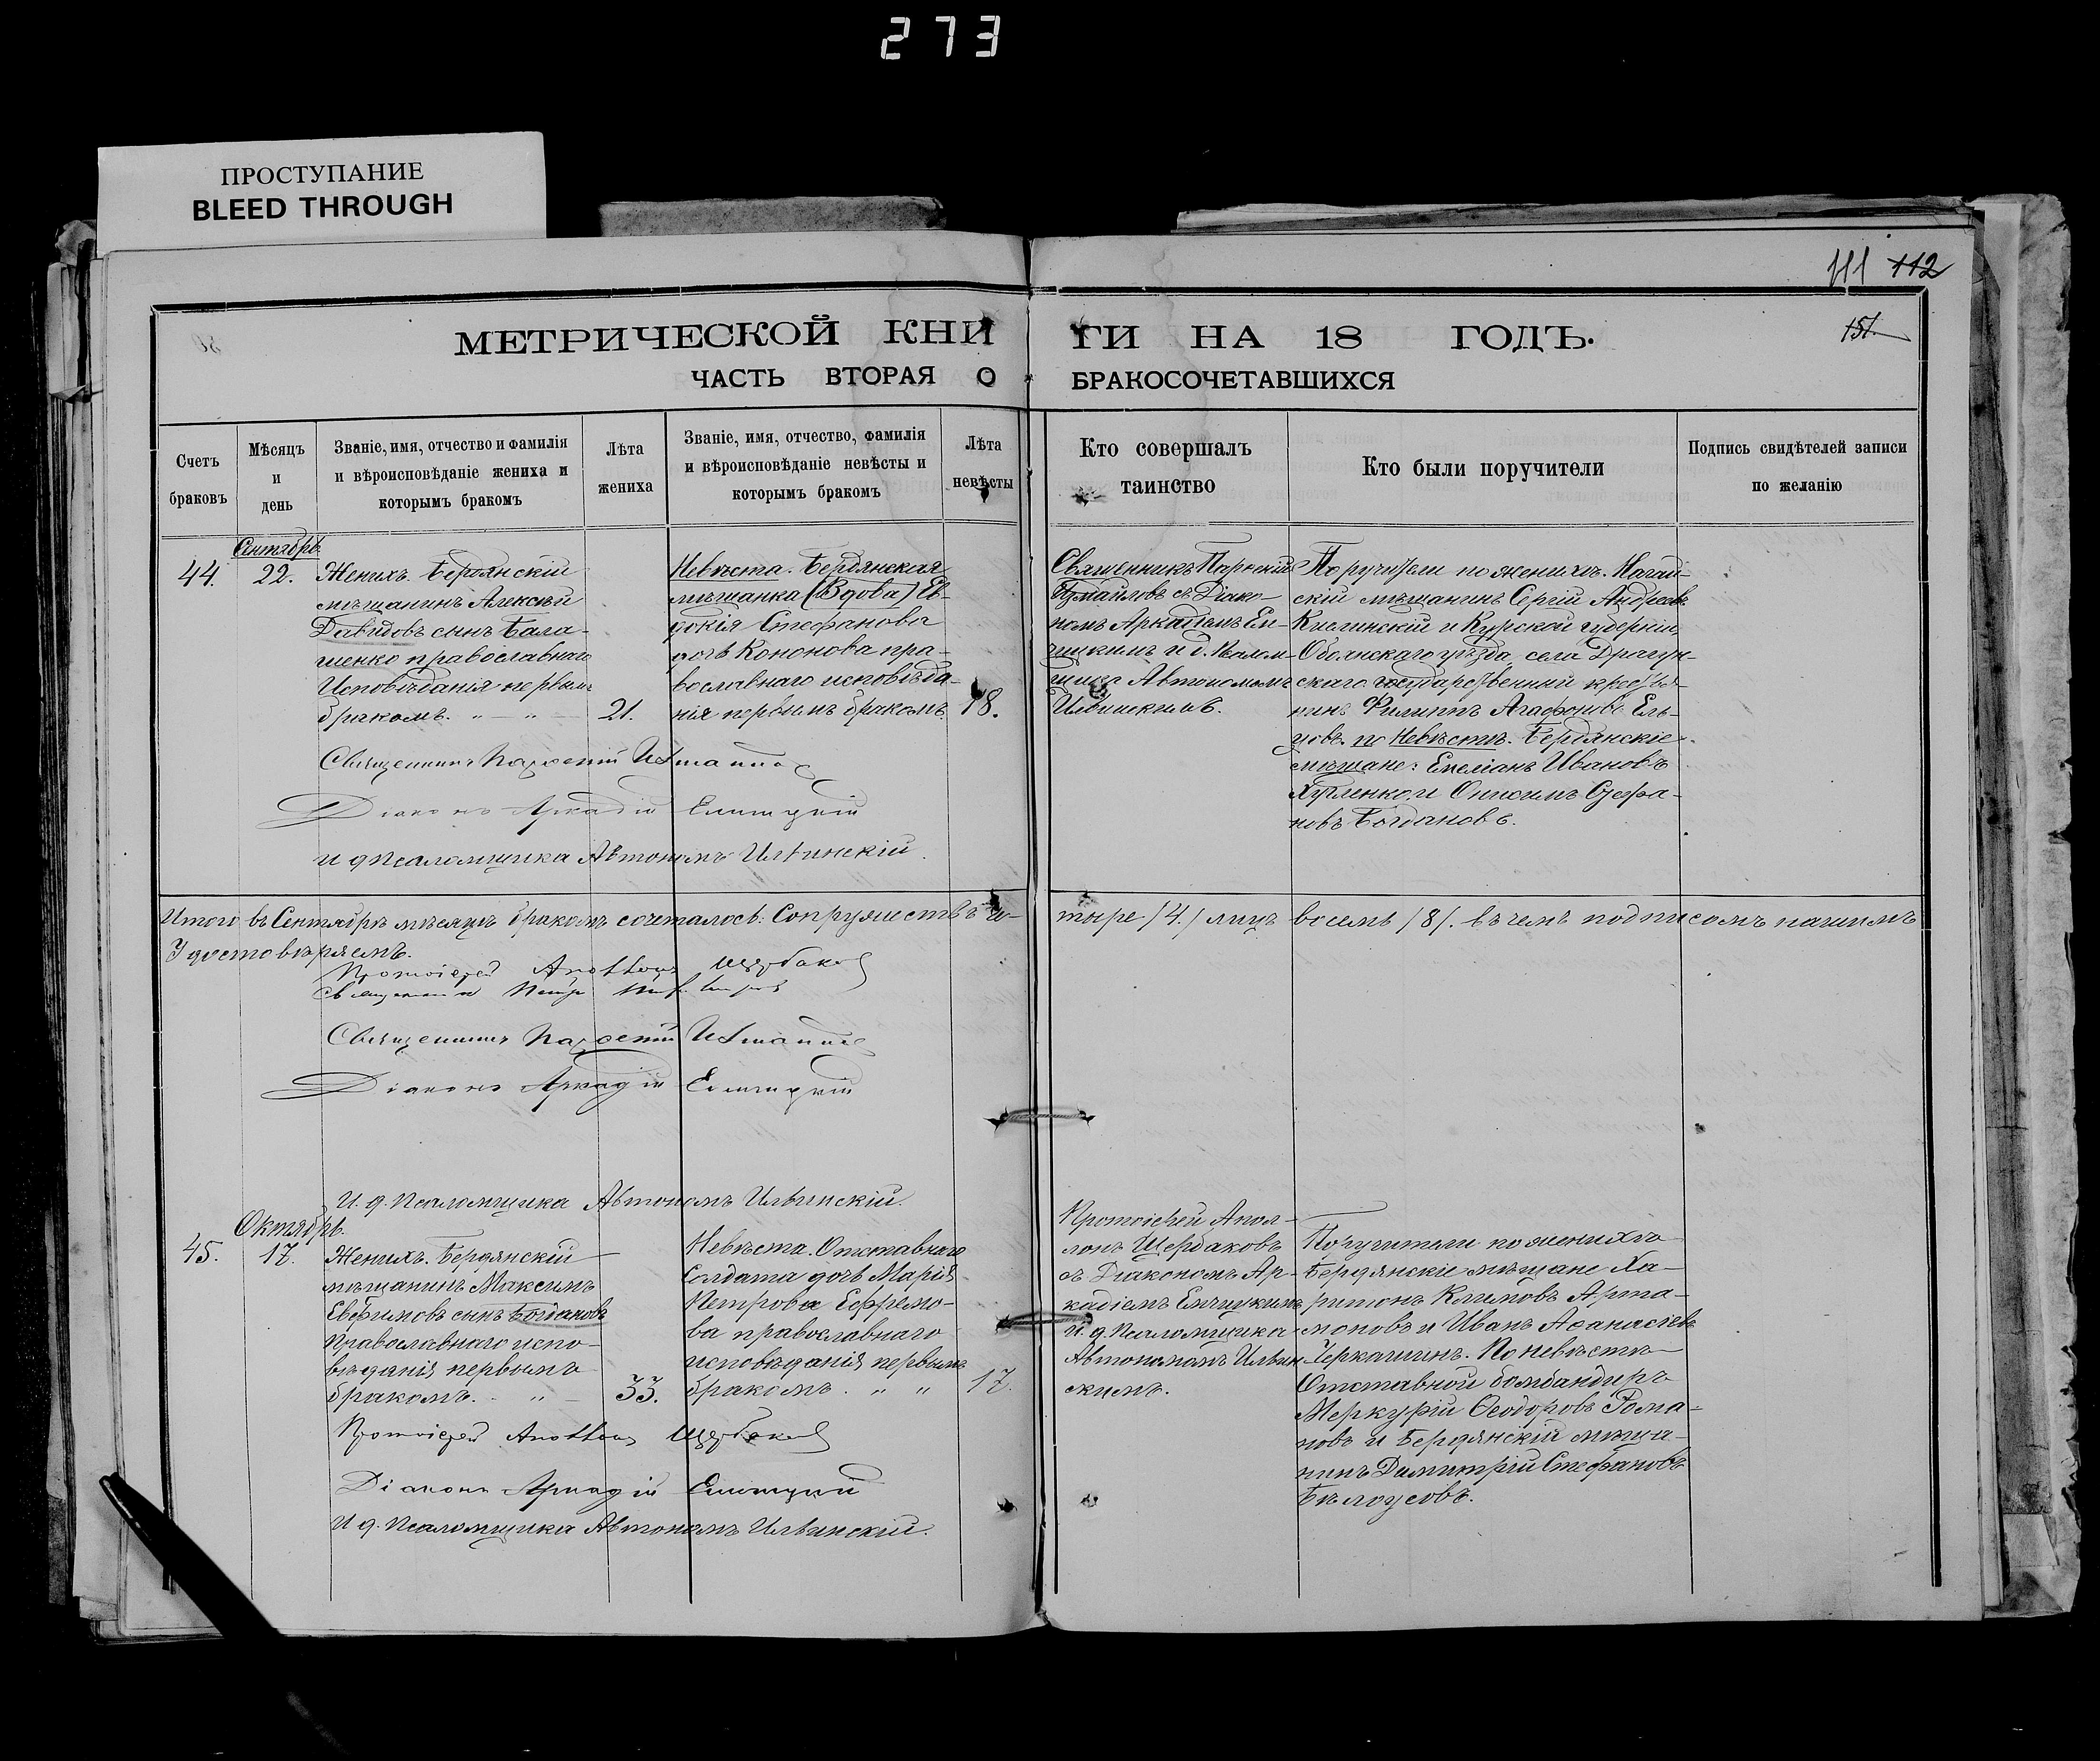 273
ПРОСТУПАНИЕ
BLEED THROUGH
111 112
151.
МЕТРИЧЕСКОЙ КНИ ГИ НА 18 ГОДЪ.
ЧАСТЬ ВТОРАЯ О БРАКОСОЧЕТАВШИХСЯ
Счетъ
браковъ
Мѣсяцъ
и
день
Званіе, имя, отчество и фамилія
и вѣроисповѣданіе жениха и
которымъ бракомъ
Лѣта
жениха
Званіе, имя, отчество, фамилія
и вѣроисповѣданіе невѣсты и
которымъ бракомъ
Лѣта
невѣсты
Кто совершалъ
таинство
Кто были поручители
Подпись свидѣтелей записи
по желанію
Сентябрь
44.
22.
Женихъ. Бердянскій
мѣщанинъ Алексѣй
Давидовъ сынъ Бала-
шенко православнаго
Исповѣданія первымъ
бракомъ. " — "
21.
Невѣста. Бердянская
мѣщанка (Вдова) Ев-
докія Стефанова
дочь Кононова пра-
вославнаго исповѣда-
нія первымъ бракомъ.
18.
Священникъ
Измаиловъ съ Діако-
номъ Аркадіемъ Ем-
чицкимъ и д. Псалом-
щика Автономомъ
Ильинскимъ.
Поручители по женихѣ. Ногай-
скій мѣщанинъ Сергій Андреевъ
Кислинскій и Курской губерніи,
Обоянскаго уѣзда, села Драгун-
скаго государственный крестья-
нинъ Филиппъ Агафоновъ Ель-
цовъ. по Невѣстѣ. Бердянскіе
мѣщане: Емеліанъ Ивановъ
и Онисимъ Стефа-
новъ Богдановъ.
Священникъ Измаиловъ
Діаконъ Аркадій Емчицкій
и д псаломщика Автономъ Ильинскій.
Итого въ Сентябрѣ мѣсяцѣ бракомъ сочеталось: Супружествъ че-
тыре /4./ лицъ восемь /8/. въ чемъ подписомъ нашимъ
Удостовѣряемъ.
Протоіерей Аполлонъ Щербаковъ
Священникъ Петръ
Священникъ Измаиловъ
Діаконъ Аркадій Емчицкій
И. д. Псаломщика Автономъ Ильинскій.
Октябрь.
45.
17.
Женихъ. Бердянскій
мѣщанинъ Максимъ
Евфимовъ сынъ Богдановъ
Православнаго испо-
вѣданія первымъ
бракомъ. - " -
33.
Невѣста. Отставнаго
Солдата дочь Марія
Петрова Ефремо-
ва православнаго
исповѣданія первымъ
бракомъ. " "
17.
Протоіерей Апол-
лонъ Щербаковъ
съ Діакономъ Ар-
кадіемъ Емчицкимъ
и. д. Псаломщика
Автономомъ Ильин-
скимъ.
Поручители по женихѣ
Бердянскіе мѣщане Ха-
ритонъ Климовъ Арта-
моновъ и Иванъ Аѳанасіевъ
Черкашинъ. По невѣстѣ
Отставной бомбандиръ
Меркурій Ѳеодоровъ Рома-
новъ и Бердянскій мѣща-
нинъ Димитрій Стефановъ
Бѣлоусовъ.
Протоіерей Аполлонъ Щербаковъ
Діаконъ Аркадій Емчицкій
И д. Псаломщика Автономъ Ильинскій.